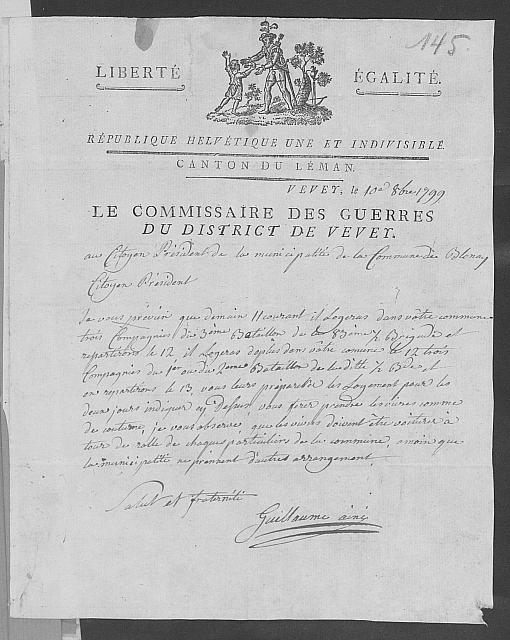 145.
LIBERTÉ ÉGALITÉ.
RÉPUBLIQUE HELVÉTIQUE UNE ET INDIVISIBLE.
CANTON DU LÉMAN.
VEVEY, le 10e 8bre 1799
LE COMMISSAIRE DES GUERRES
DU DISTRICT DE VEVEY.
au Citoyen Président de la municipalité de la Commune de Blonay
Citoyen Président
Je vous prévien que demain 11 courant il Logeras dans vôtre commune
trois Compagnies du 3ème Bataillon de la 83ème ½ Brigade et
repartirons le 12. il Logeras deplus dans vôtre comune le 12 trois
Compagnies du 1er ou du 2eme Bataillon de laditte ½ Bde et
en repartirons le 13. vous leurs préparerée les Logement pour les
deux jours indiqué cy Dessus, vous ferez prendre les vivres comme
de coutume, je vous observe, que les vivres doivent être voituré à
tour de rolle de chaques particuliers de la commune, amoin que
la municipalité ne prennent d'autres arrangement.
Salut et fraternité
Guillaume ainé